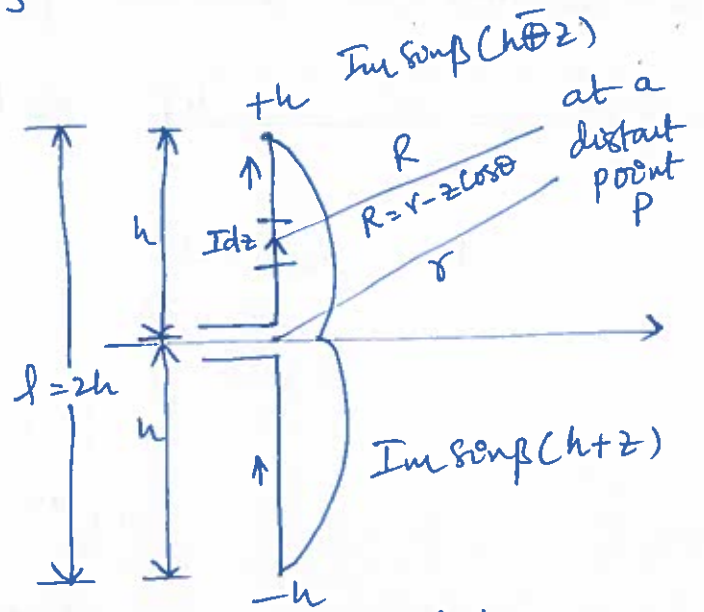 Im sinβ(h-z)
+h
at a
distant
point
P
R
R=r-zcosθ
h
Idz
r
l=2h
h
Im sinβ(h+z)
-h